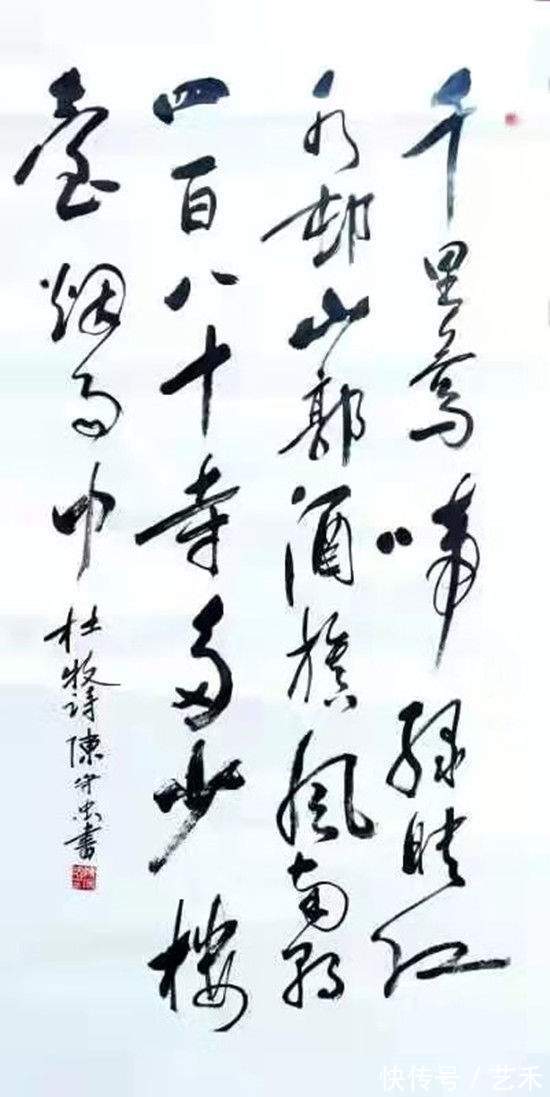 千里莺啼绿暎红
水邨山郭酒旗风南朝
四百八十寺多少楼
臺烟雨中
杜牧诗陳守忠書
快传号 / 艺禾